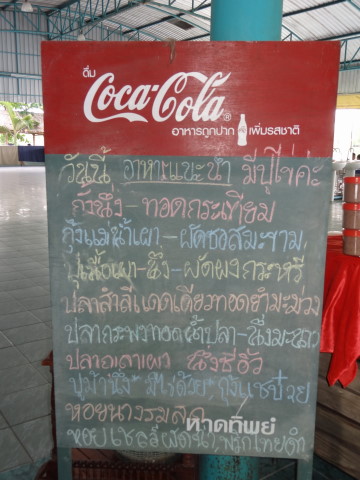 ดื่ม
Coca-Cola®
อาหารถูกปาก เพิ่มรสชาติ
วันนี้ อาหารแนะนำ มีปูไข่ค่ะ
กั้งนึ่ง - ทอดกระเทียม
กุ้งแม่น้ำเผา - ผัดซอสมะขาม
ปูเนื้อเผา - นึ่ง - ผัดผงกระหรี่
ปลาสำลีแดดเดียวทอดยำมะม่วง
ปลากะพงทอดน้ำปลา - นึ่งมะนาว
ปลาเก๋าแดง นึ่งซีอิ๊ว
ปูม้านึ่ง "มีไข่ด้วย" กุ้งแช่บ๊วย
หอยนางรมสด
หาดทิพย์
หอยเชลล์ผัดฉ่า, พริกไทยดำ